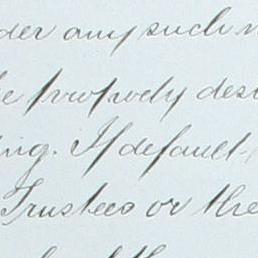 der any such
properly des
ing. If default
Trustees or the